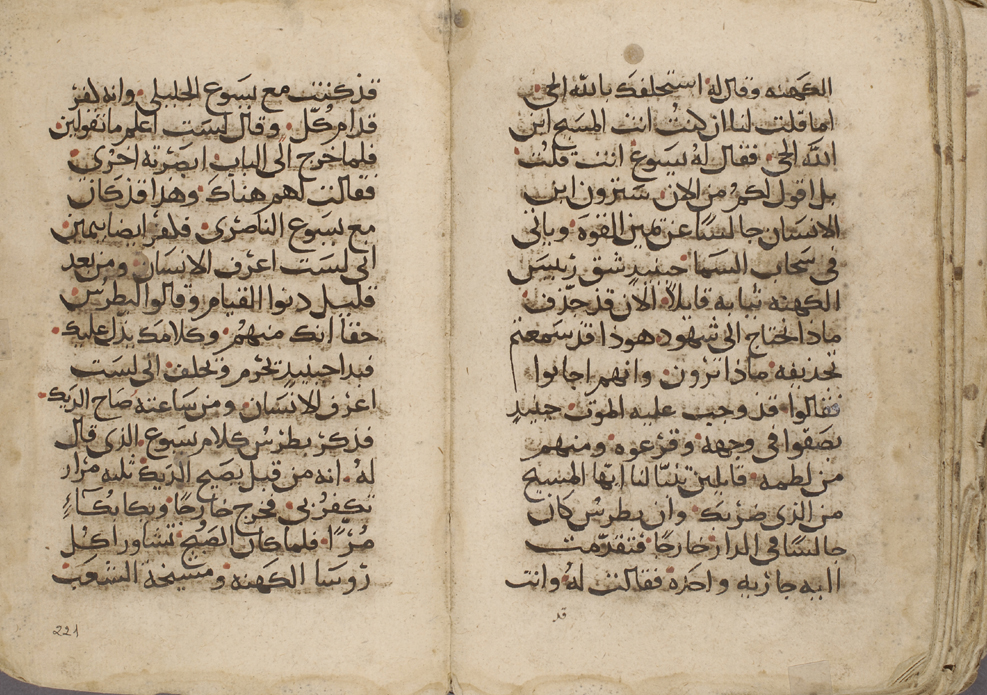 الكهنه وقال له استحلفك بالله الحي
اما قلت لنا ان كنت انت المسيح ابن
الله الحي فقال له يسوع انت قلت
بل اقول لكم من الان سترون ابن
الانسان جالسًا عن يمين القوة وياتي
في سحاب السما حينيد شق رييس
الكهنه ثيابه قايلاً الان قد جدّف
ماذا نحتاج الى شهود هوذا قد سمعتم
تجديفه ماذا ترون وانهم اجابوا
فقالوا قد وجب عليه الموت حينيد
بصقوا في وجهه وقرعوه ومنهم
من لطمه قايلين تنبّا لنا ايها المسيح
من الذي ضربك وان بطرس كان
جالسًا في الدار خارجًا فتقدّمت
اليه جاريه واحده فقالت له وانت
قد
قد كنت مع يسوع الجليلي وانه كفر
قدام كل وقال لست اعلم ما تقولين
فلما خرج الى الباب ابصرته اخرى
فقالت لهم هناك وهذا قد كان
مع يسوع الناصري فكفر ايضا بيمين
اني لست اعرف الانسان ومن بعد
قليل دنوا القيام وقالوا لبطرس
حقاً انك منهم وكلامك يدل عليك
فبدا حينيد يحرم ويحلف اني لست
اعرف الانسان ومن ساعته صاح الديك
فذكر بطرس كلام يسوع الذي قال
له انه من قبل يصيح الديك ثلثه مرار
تكفر بي فخرج خارجًا وبكا بكاءً
مرّاً فلما كان الصبح تشاور اكل
روسا الكهنه ومشيخة الشعب
221